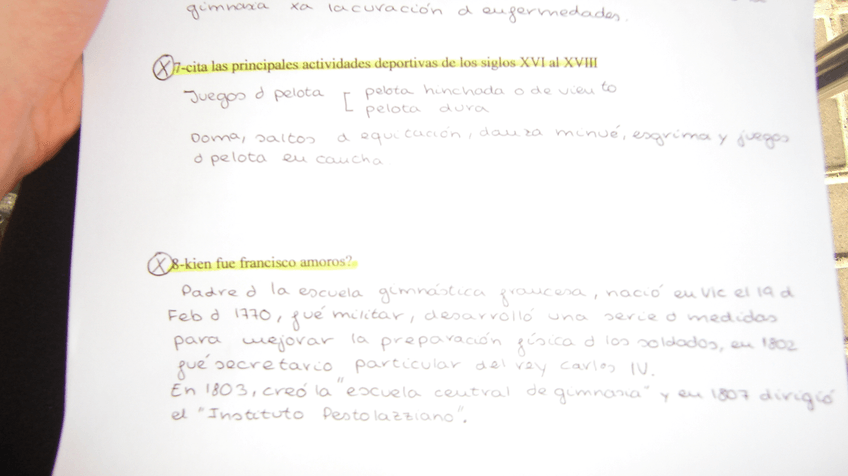 gimnaxa xa la curación d enfermedades.
7-cita las principales actividades deportivas de los siglos XVI al XVIII
Juegos d pelota [ pelota hinchada o de viento
pelota dura
Doma, saltos d equitación, danza minué, esgrima y juegos
d pelota en caucha
8-kien fue francisco amoros?
Padre d la escuela gimnástica francesa, nació en Vic el 19 d
Feb d 1770, fué militar, desarrolló una serie d medidas
para mejorar la preparación física d los soldados, en 1802
fué secretario particular del rey Carlos IV.
En 1803, creó la "escuela central de gimnasia" y en 1807 dirigió
el "Instituto Pestolazziano".